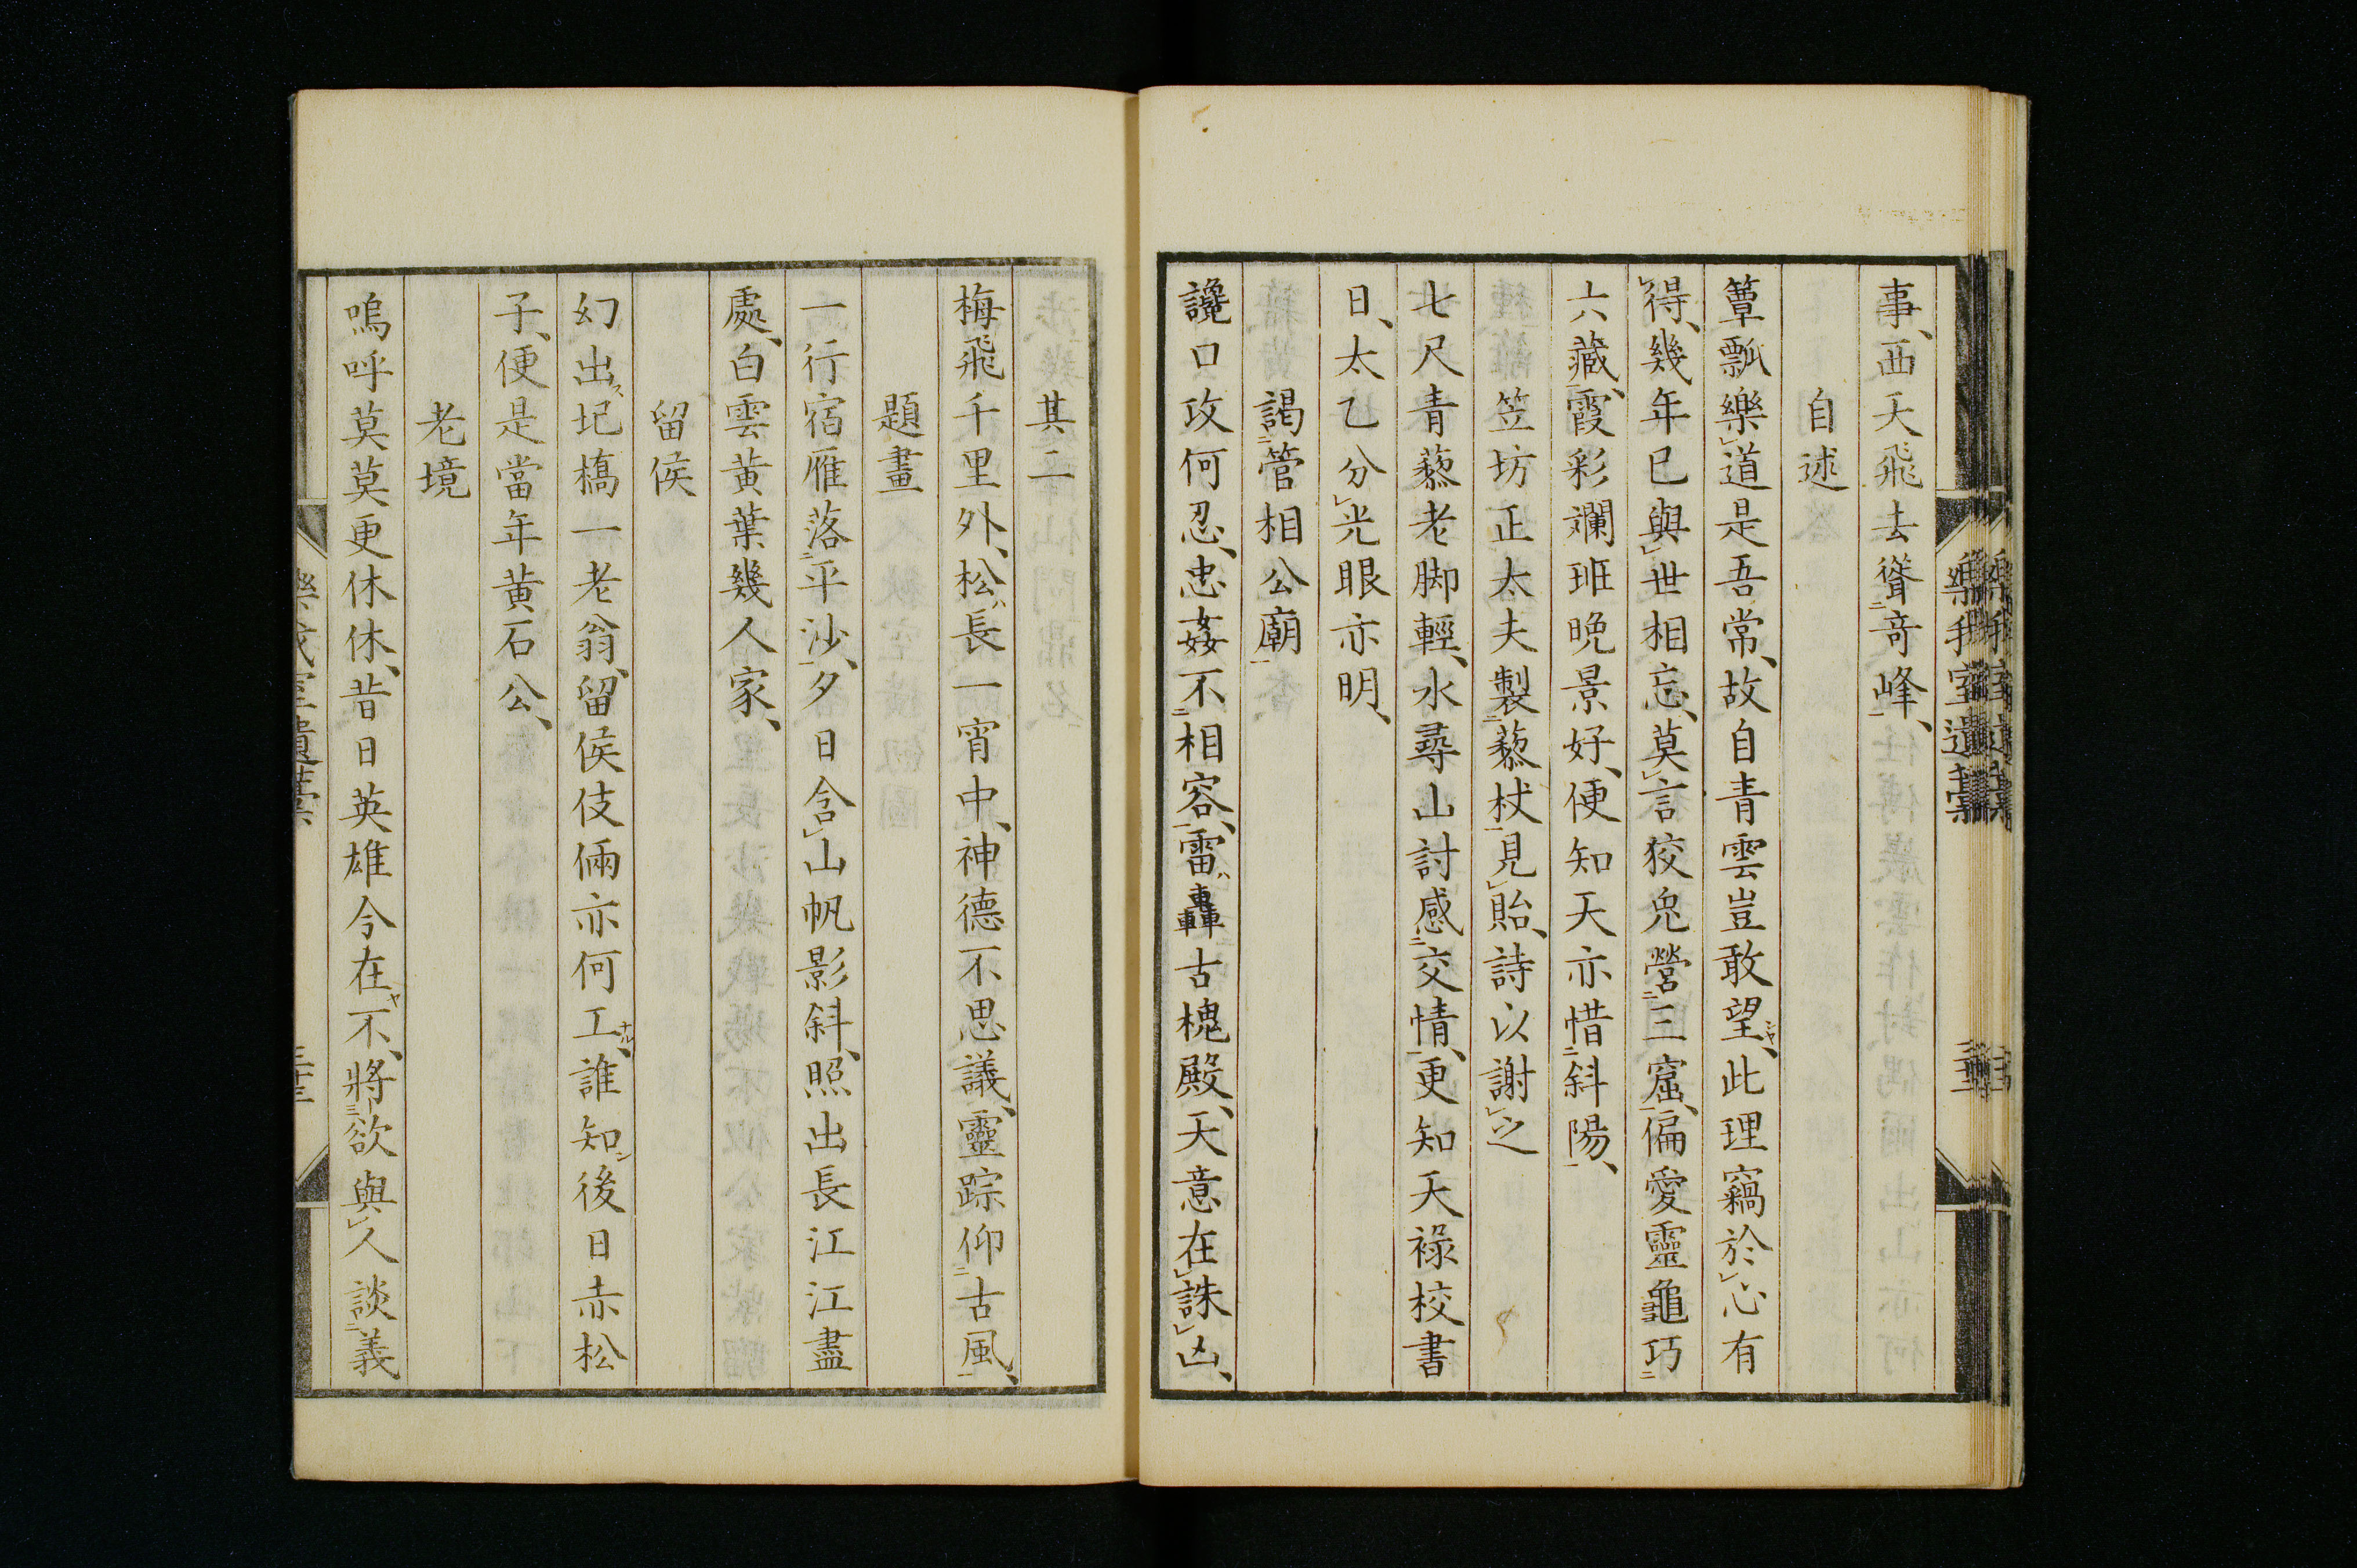 事、西天飛去聳二奇峰一、
自述
簞瓢樂レ道是吾常、故自青雲豈敢望ミヤ、此理竊於レ心有
レ得、幾年已與レ世相忘、莫レ言狡兔營二三窟一、偏愛靈龜巧二
六藏一、霞彩斕斑晚景好、便知天亦惜二斜陽一、
笠坊正太夫製二藜杖一見レ貽、詩以謝レ之
七尺青藜老脚輕、水尋山討感二交情一、更知天祿校書
日、太乙分レ光眼亦明、
謁二管相公廟一
讒口攻何忍、忠姦不二相容一、雷ハ轟古槐殿、天意在レ誅レ凶、
其二
梅飛千里外、松ハ長一宵中、神德不思議、靈踪仰二古風一、
題畫
一行宿雁落二平沙一、夕日含レ山帆影斜、照出長江江盡
處、白雲黃葉幾人家、
留侯
幻出ス圯橋一老翁、留侯伎倆亦何工ナル、誰知ン後日赤松
子、便是當年黃石公、
老境
嗚呼莫莫更休休、昔日英雄今在ヤ不、將三欲與レ人談二義
樂我室遺稾